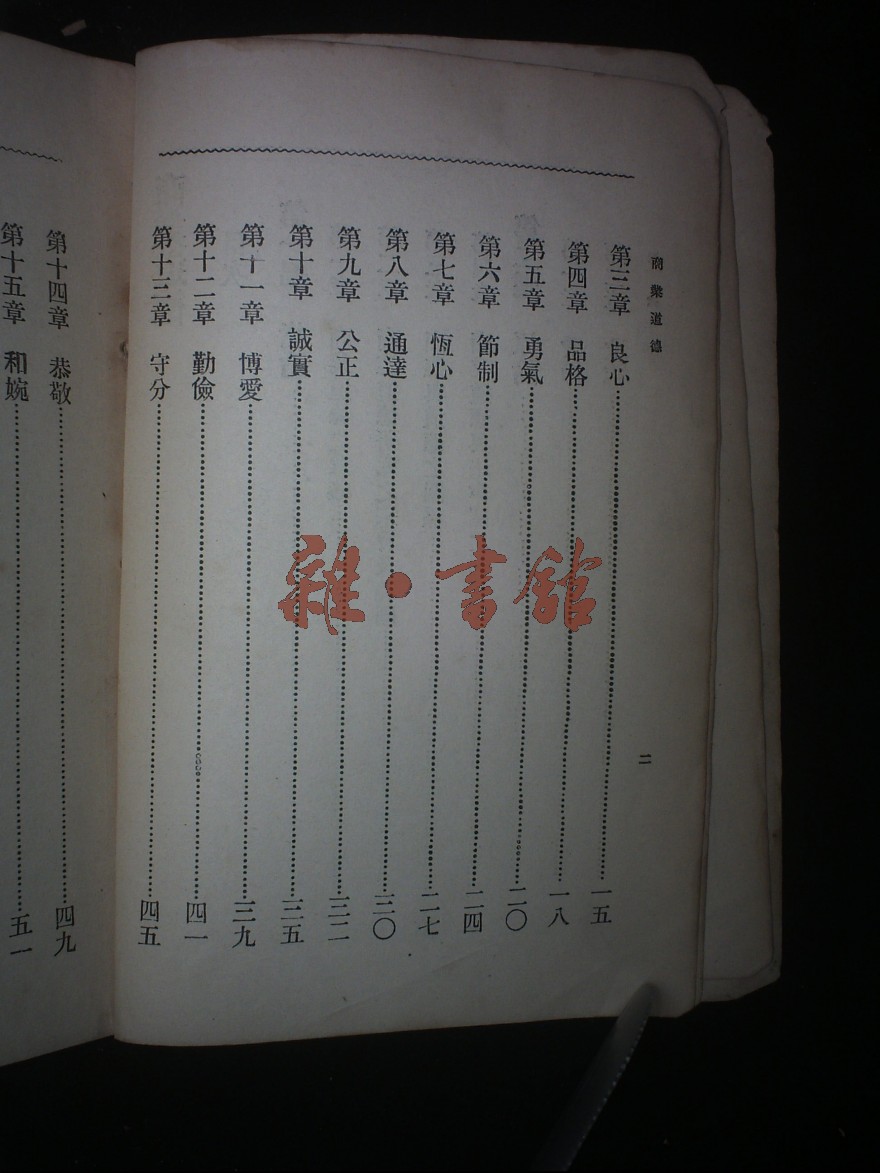 商業道德
二
第三章 良心 一五
第四章 品格 一八
第五章 勇氣 二〇
第六章 節制 二四
第七章 恆心 二七
第八章 通達 三〇
第九章 公正 三二
第十章 誠實 三五
第十一章 博愛 三九
第十二章 勤儉 四一
第十三章 守分 四五
第十四章 恭敬 四九
第十五章 和婉 五一
雜·書館